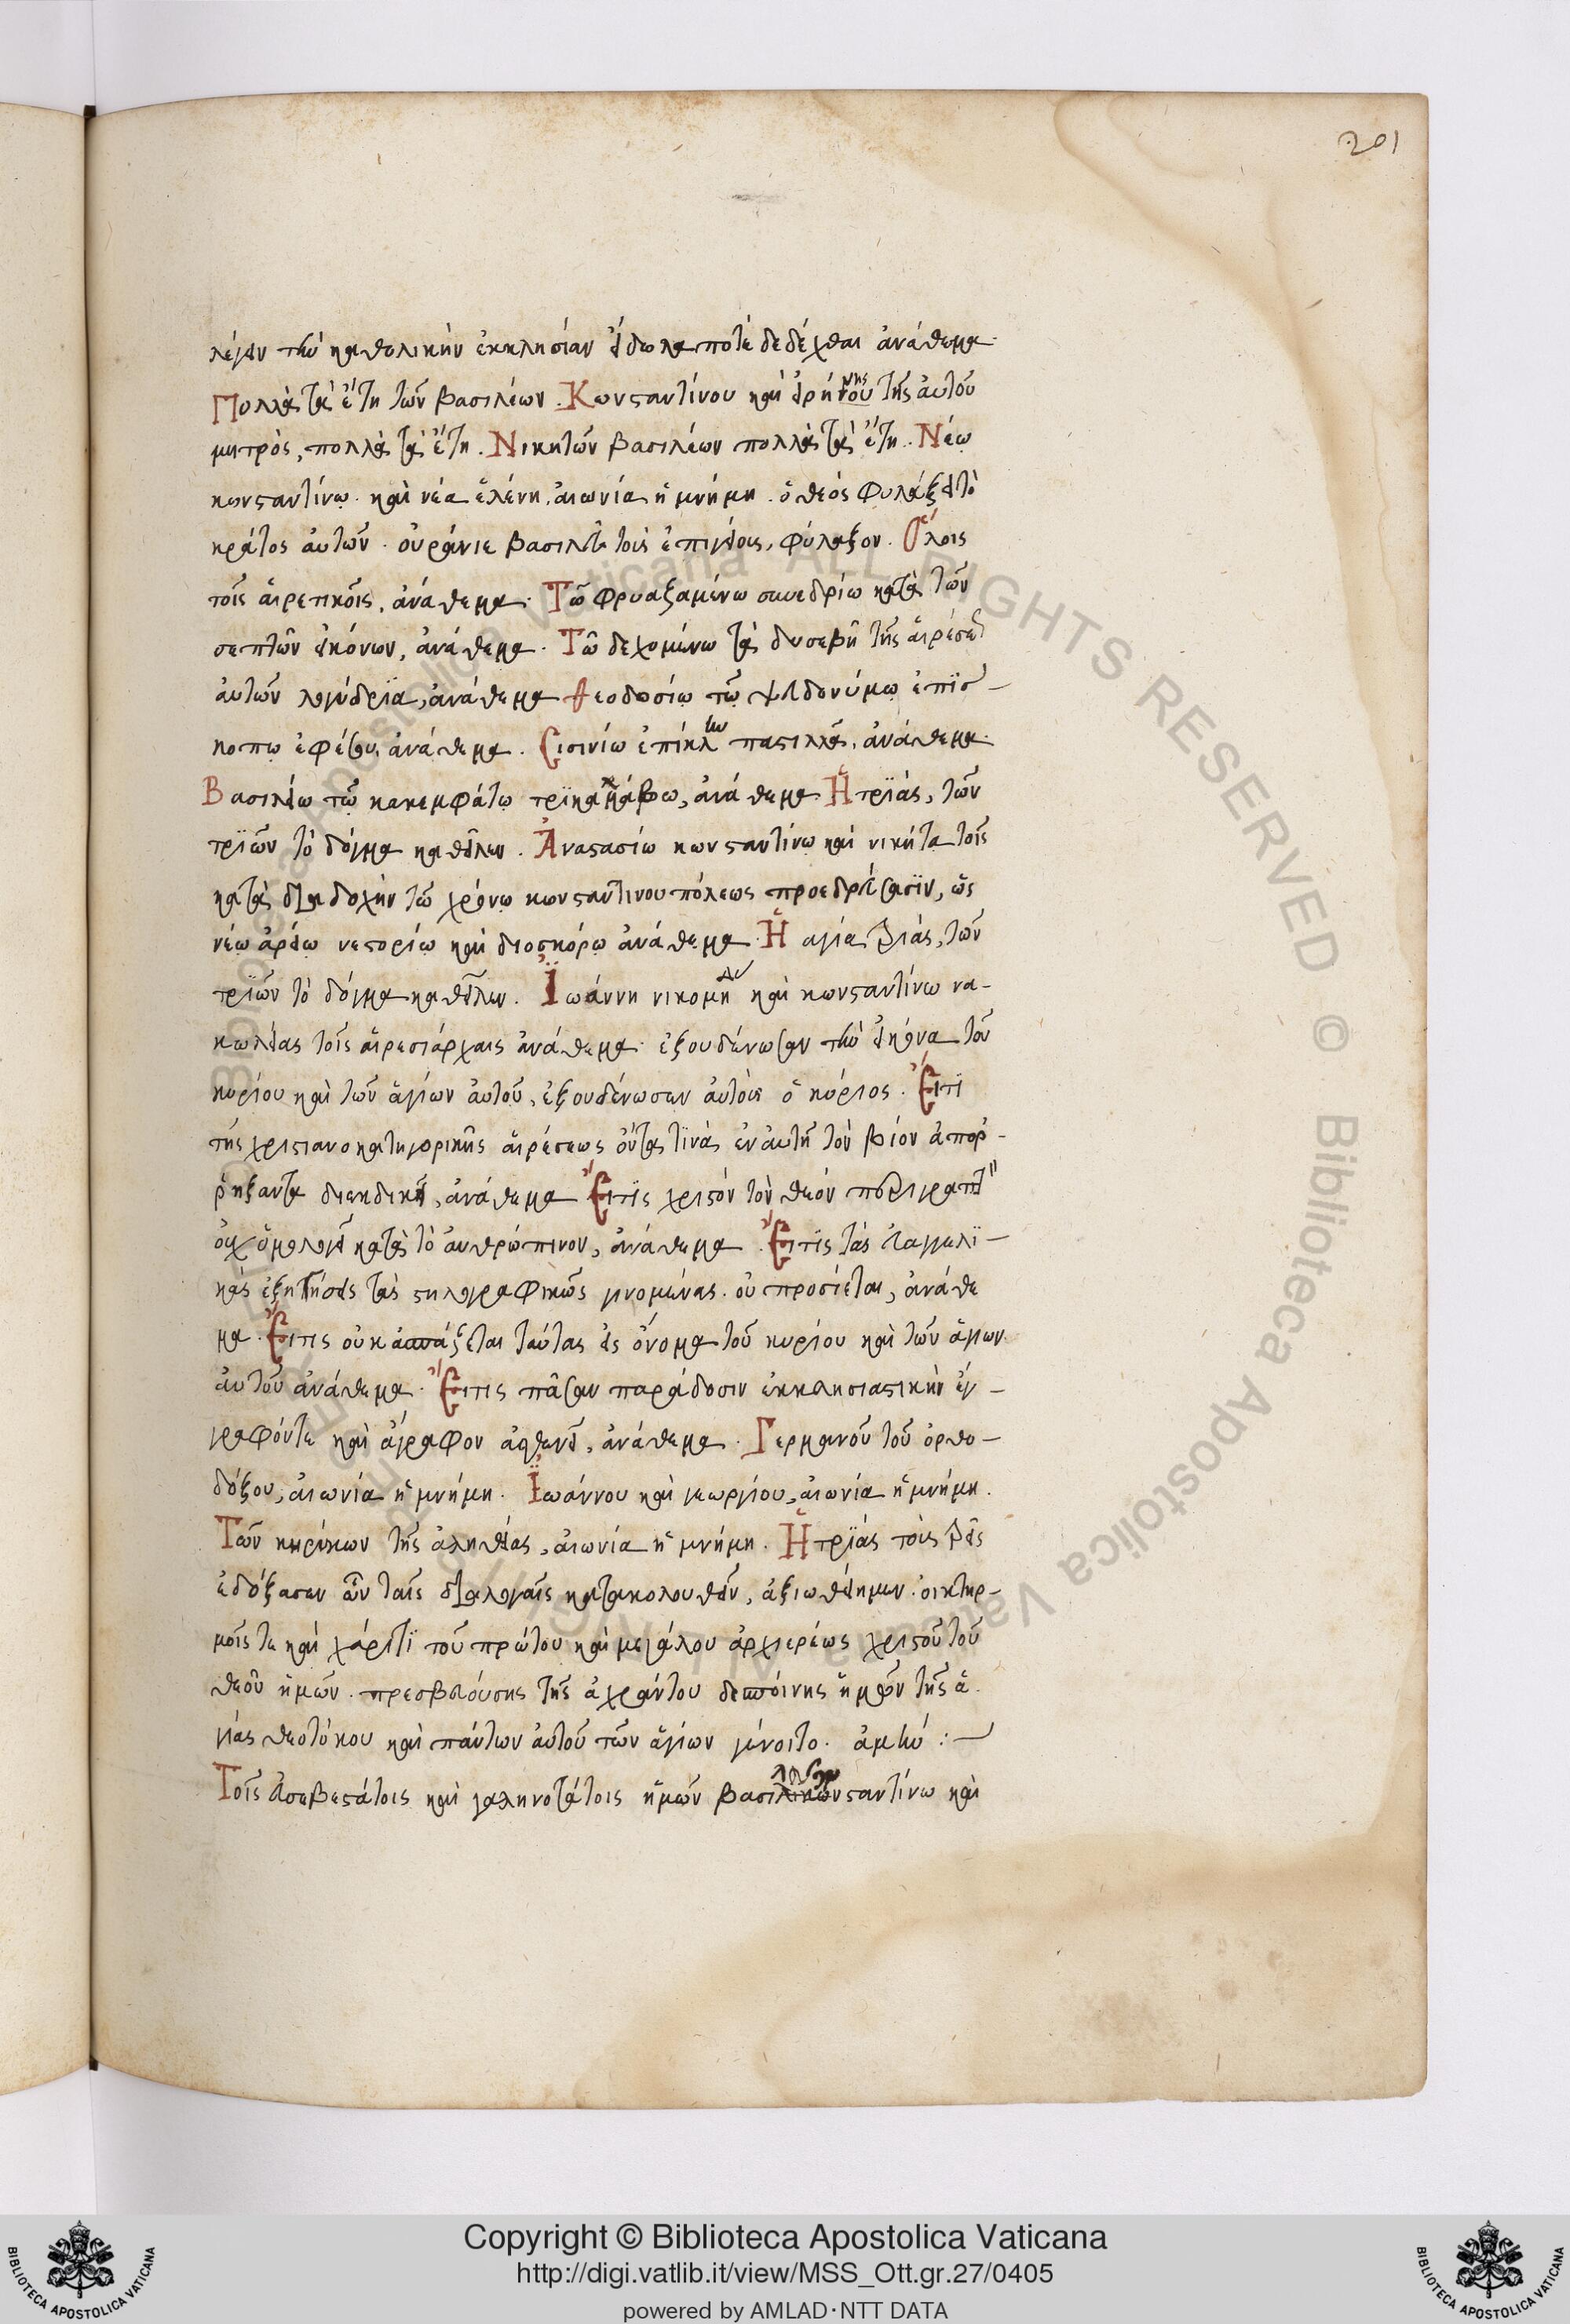 201
λέγειν τὴν καθολικὴν ἐκκλησίαν εἴδωλα ποτὲ δεδέχθαι ἀνάθεμα.
Πολλὰ τὰ ἔτη τῶν βασιλέων. Κωνσταντίνου καὶ εἰρήνης τῆς αὐτοῦ
μητρὸς, πολλὰ τὰ ἔτη. Νικητῶν βασιλέων πολλὰ τὰ ἔτη. Νέω
κωνσταντίνω. καὶ νέα ἑλένη, αἰωνία ἡ μνήμη. ὁ θεὸς φυλάξει τὸ
κράτος αὐτῶν. οὐράνιε βασιλεῦ τοὺς ἐπιγείους, φύλαξον. Ὅλοις
τοῖς αἱρετικοῖς, ἀνάθεμα. Τῶ φρυαξαμένω συνεδρίω κατὰ τῶν
σεπτῶν εἰκόνων, ἀνάθεμα. Τῶ δεχομένω τὰ δυσεβῆ τῆς αἱρέσεως
αὐτῶν λογύδρια, ἀνάθεμα Θεοδοσίω τῶ ψευδονύμω ἐπισ-
κοπω ἐφέσου, ἀνάθεμα. Σισινίω ἐπίκλην παστιλλᾶ, ἀνάθεμα.
Βασιλείω τῶ κακεμφάτω τρικακάβω, ἀνάθεμα Ἡ τριὰς, τῶν
τριῶν τὸ δόγμα καθεῖλεν. Ἀναστασίω κωνσταντίνω καὶ νικήτα τοῖς
κατὰ διαδοχὴν τῶ χρόνω κωνσταντινουπόλεως προεδρεύσασιν, ὡς
νέω ἀρείω νεστορίω καὶ διοσκόρω ἀνάθεμα. Ἡ αγία τριὰς, τῶν
τριῶν τὸ δόγμα καθεῖλεν. Ἰωάννη νικομη καὶ κωνσταντίνω να-
κωλείας τοῖς αἱρεσιάρχαις ἀνάθεμα. ἐξουδένωσαν τὴν εἰκόνα τοῦ
κυρίου καὶ τῶν ἁγίων αὐτοῦ, ἐξουδένωσεν αὐτοὺς ὁ κύριος. Εἴτι
τῆς χριστιανοκατηγορικῆς αἱρέσεως ὄντας τινὰς ἐν αὐτῆ τὸν βίον ἀπορ-
ρήξαντα διεκδικεῖ, ἀνάθεμα Εἴτις χριστὸν τὸν θεὸν περιγραπτὸν
οὐχ ὁμολογεῖ κατὰ τὸ ἀνθρώπινον, ἀνάθεμα. Εἴτις τὰς εὐαγγελι-
κὰς ἐξηγήσεις τὰς στηλογραφικῶς γινομένας. οὐ προσίεται, ἀνάθε
μα. Εἴτις οὐκ ἀσπάζεται ταύτας εἰς ὄνομα τοῦ κυρίου καὶ τῶν ἁγίων
αὐτοῦ ἀνάθεμα. Εἴτις πᾶσαν παράδοσιν ἐκκλησιαστικὴν ἐγ-
γραφόντε καὶ ἄγραφον ἀθετεῖ, ἀνάθεμα. Γερμανοῦ τοῦ ὀρθο-
δόξου, αἰωνία ἡ μνήμη. Ἰωάννου καὶ γεωργίου, αἰωνία ἡ μνήμη.
Τῶν κηρύκων τῆς ἀληθείας, αἰωνία ἡ μνήμη. Ἡ τριὰς τοὺς τρεῖς
ἐδόξασεν ὧν ταῖς διαλογαῖς κατακολουθεῖν, ἀξιωθείημεν. οἰκτιρ-
μοῖς τε καὶ χάριτι τοῦ πρώτου καὶ μεγάλου ἀρχιερέως χριστοῦ τοῦ
θεοῦ ἡμῶν. πρεσβευούσης τῆς ἀχράντου δεσποίνης ἡμῶν τῆς ἁ-
γίας θεοτόκου καὶ πάντων αὐτοῦ τῶν ἁγίων γένοιτο. ἀμήν :-
Τοῖς εὐσεβεστάτοις καὶ γαληνοτάτοις ἡμῶν βασιλεῦσι κωνσταντίνω καὶ
Biblioteca Apostolica Vaticana ALL RIGHTS RESERVED ©
Copyright © Biblioteca Apostolica Vaticana
http://digi.vatlib.it/view/MSS_Ott.gr.27/0405
powered by AMLAD·NTT DATA
BIBLIOTECA APOSTOLICA VATICANA
BIBLIOTECA APOSTOLICA VATICANA